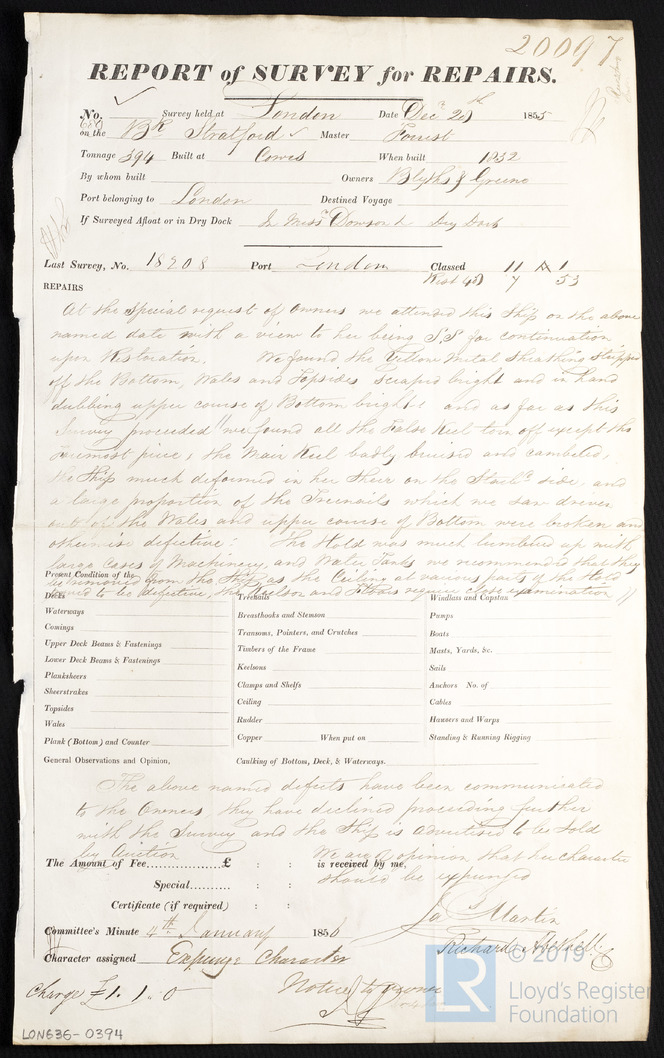 20097
REPORT of SURVEY for REPAIRS.
No. Survey held at London Date Decr 28th 1855
on the Bk Stratford Master Forrest
Tonnage 394 Built at Cowes When built 1832
By whom built Owners Blyths & Greene
Port belonging to London Destined Voyage
If Surveyed Afloat or in Dry Dock In Messrs Dowson's Dry Dock
Last Survey, No. 18208 Port London Classed 11 A 1
7 53
REPAIRS
At the Special request of Owners we attended this Ship on the above
named date with a view to her being S.S for continuation
upon Restoration. We found the Yellow Metal Sheathing stripped
off the Bottom, Wales and Topsides scraped bright and in hand
dubbing upper course of Bottom bright and as far as this
Survey proceeded we found all the False Keel torn off except the
foremost piece, the Main Keel badly bruised and cambered,
the Ship much deformed in her Sheer on the Starbd side, and
a large proportion of the Treenails which we saw driven
out of the Wales and upper course of Bottom were broken and
otherwise defective: The Hold was much lumbered up with
large cases of Machinery, and Water Tanks we recommended that they
Present Condition of the
be removed from the Ship as the Ceiling at various parts of the Hold
to be defective, the Keelson and require close examination
Decks Treenails Windlass and Capstan
Waterways Breasthooks and Stemson Pumps
Comings Transoms, Pointers, and Crutches Boats
Upper Deck Beams & Fastenings Timbers of the Frame Masts, Yards, &c.
Lower Deck Beams & Fastenings Keelsons Sails
Planksheers Clamps and Shelfs Anchors No. of
Sheerstrakes Ceiling Cables
Topsides Rudder Hawsers and Warps
Wales Copper When put on Standing & Running Rigging
Plank (Bottom) and Counter
General Observations and Opinion, Caulking of Bottom, Deck, & Waterways.
The above named defects have been communicated
to the Owners, they have declined proceeding further
with the Survey and the Ship is advertised to be Sold
by Auction We are of opinion that her character
The Amount of Fee £ : : is received by me,
should be expunged
Special : :
Certificate (if required) : : Ja Martin
Committee's Minute 4th January 1856
Richard
Character assigned Expunge Character
Charge £1. 1. 0 Notice to Owner
LON636-0394
LR
© 2019
Lloyd's Register
Foundation